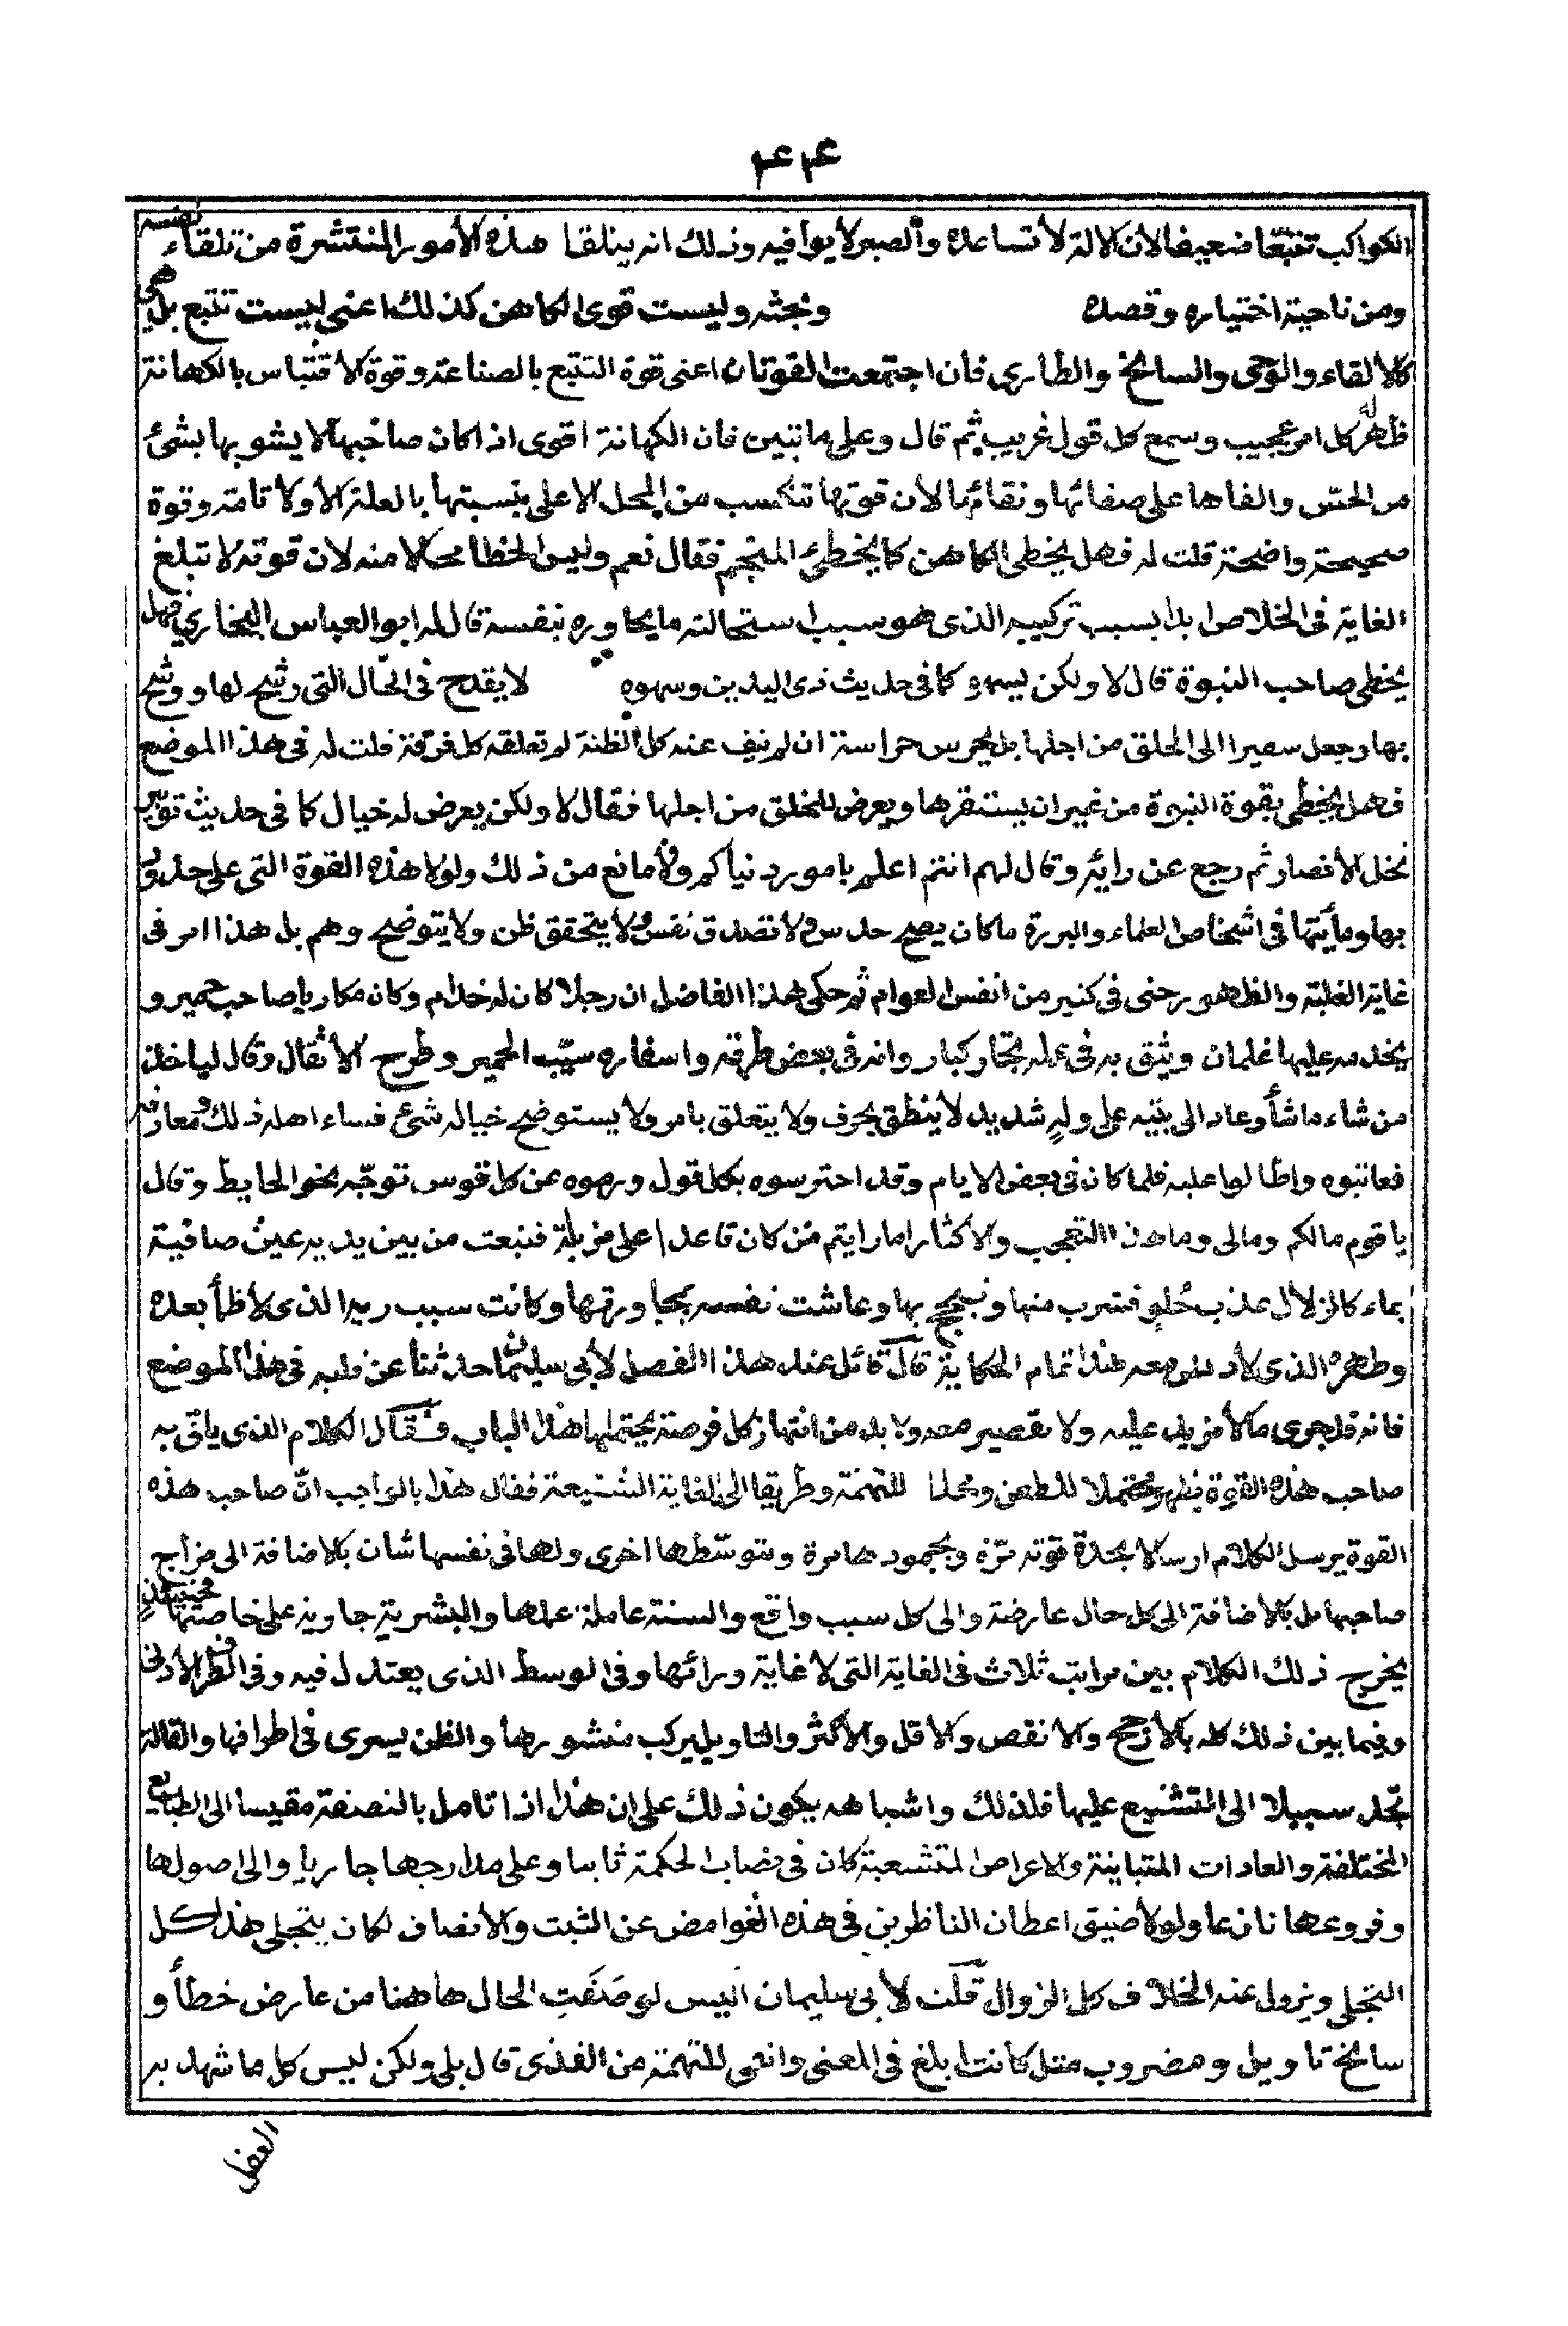 ۴۴
الكواكب تتبّعا ضعيفا لان الالة لا تساعده والصبر لا يوافيه وذلك انه يتلقا هذه الأمور المنتشرة من تلقاء نفسه
ومن ناحية اختياره وقصده وبحثه وليست قوى الكاهن كذلك اعنى ليست تتبع بل هى
كالالقاء والوحى والسانح والطارى فان اجتمعت القوتان اعنى قوة التتبع بالصناعة وقوة الاقتباس بالكهانة
ظهر له كل امر عجيب وسمع كل قول غريب ثم قال وعلى ما تبين فان الكهانة اقوى اذا كان صاحبها لا يشوبها بشئ
من الحسّ والفاها على صفائها ونقائها لأن قوتها تنكسب من المحل الاعلى بنسبتها بالعلة الأولا تامة وقوة
صحيحة واضحة قلت له فهل يخطى الكاهن كما يخطئ المنجّم فقال نعم وليس الخطا محالا منه لان قوته لا تبلغ
الغاية فى الخلاص ابدا بسبب تركيبه الذى هو سبب استحالته ما يحاوره بنفسه قال له ابو العباس البخارى فهل
يخطى صاحب النبوة قال لا ولكن يسهو كما فى حديث ذى اليدين وسهوه لا يقدح فى الحال التى رشح لها ووشح
بها وجعل سفيرا الى الخلق من اجلها بل يحرس حراسة ان لم تنف عنه كل الظنة لم تعلقه كل قرفة قلت له فى هذا الموضع
فهل يخطى بقوة النبوة من غير ان يستقرها ويعرض للخلق من اجلها فقال لا ولكن يعرض له خيال كما فى حديث توبير
نخل الأنصار ثم رجع عن رايه وقال لهم انتم اعلم بامور دنياكم ولا مانع من ذلك ولولا هذه القوة التى على حذو
بها وما يتها فى اشخاص العلماء والبررة ما كان يصح حدس ولا تصدق نفس ولا يتحقق ظن ولا يتوضح وهم بل هذا امر فى
غاية الغلبة والظهور حتى فى كثير من انفس العوام ثم حكى هذا الفاضل ان رجلا كان له خدام وكان مكاريا صاحب حمير و
يخدمه عليها غلمان ويثق به فى عمله تجار كبار وانه فى بعض طرقه واسفاره سيّب الحمير وطرح الأثقال وقال لياخذ
من شاء ما شأ وعاد الى بيته على وله شديد لا ينطق بحرف ولا يتعلق بامر ولا يستوضح خياله شئ فساء اهله ذلك ومعارفه
فعاتبوه واطالوا عليه فلما كان فى بعض الايام وقد احترسوه بكل قول ورموه عن كل قوس توجّه نحو الحايط وقال
يا قوم مالكم ومالى وما هذا التعجب والاكثار اما رايتم من كان قاعدا على مزبلة فنبعت من بين يديه عين صافية
بماء كالزلال عذب حلو فشرب منها وتبجح بها وعاشت نفسه بمجاورتها وكانت سبب ريه الذى لا ظمأ بعده
وطهره الذى لا دنس معه هذا تمام الحكاية قال قائل عند هذا الفصل لأبى سليمان حدثنا عن قلبه فى هذا الموضع
فانه قد جرى ما لا مزيد عليه ولا تقصير معه ولا بد من انتهاز كل فرصة يحتملها هذا الباب فقال الكلام الذى ياتى به
صاحب هذه القوة يظهر محتملا للطعن ومحلا للتهمة وطريقا الى الغاية الشنيعة فقال هذا بالواجب انّ صاحب هذه
القوة يرسل الكلام ارسالا بحدة قوته مرّة وبجمودها مرة وبتوسّطها اخرى ولها فى نفسها شان بالاضافة الى مزاج
صاحبها بل بالاضافة الى كل حال عارضة والى كل سبب واقع والسنة عاملة عملها والبشرية جاوية على خاصتها فحينئذ
يخرج ذلك الكلام بين مراتب ثلاث فى الغاية التى لا غاية ورائها وفى الوسط الذى يعتدل فيه وفى الطرف الأدنى
وفيما بين ذلك كله بالأرجح والانقص والاقل والأكثر والتاويل يركب منشورها والظن يسرى فى اطرافها والقالة
تجد سبيلا الى التشنيع عليها فلذلك واشباهه يكون ذلك على ان هذا اذا تامل بالنصفة مقيسا الى الطبايع
المختلفة والعادات المتباينة والاعراض المتشعبة كان فى نصاب الحكمة ثابتا وعلى مدارجها جاريا والى اصولها
وفروعها نازعا ولولا ضيق اعطان الناظرين فى هذه الغوامض عن الثبت والأنصاف لكان يتجلى هذا كل
التجلى ويزول عنه الخلاف كل الزوال قلت لأبى سليمان اليس لو صَفَتِ الحال هاهنا من عارض خطأ و
سانح تاويل ومضروب مثل كانت ابلغ فى المعنى وانفى للتهمة من القذى قال بلى ولكن ليس كل ما شهد به
العقل